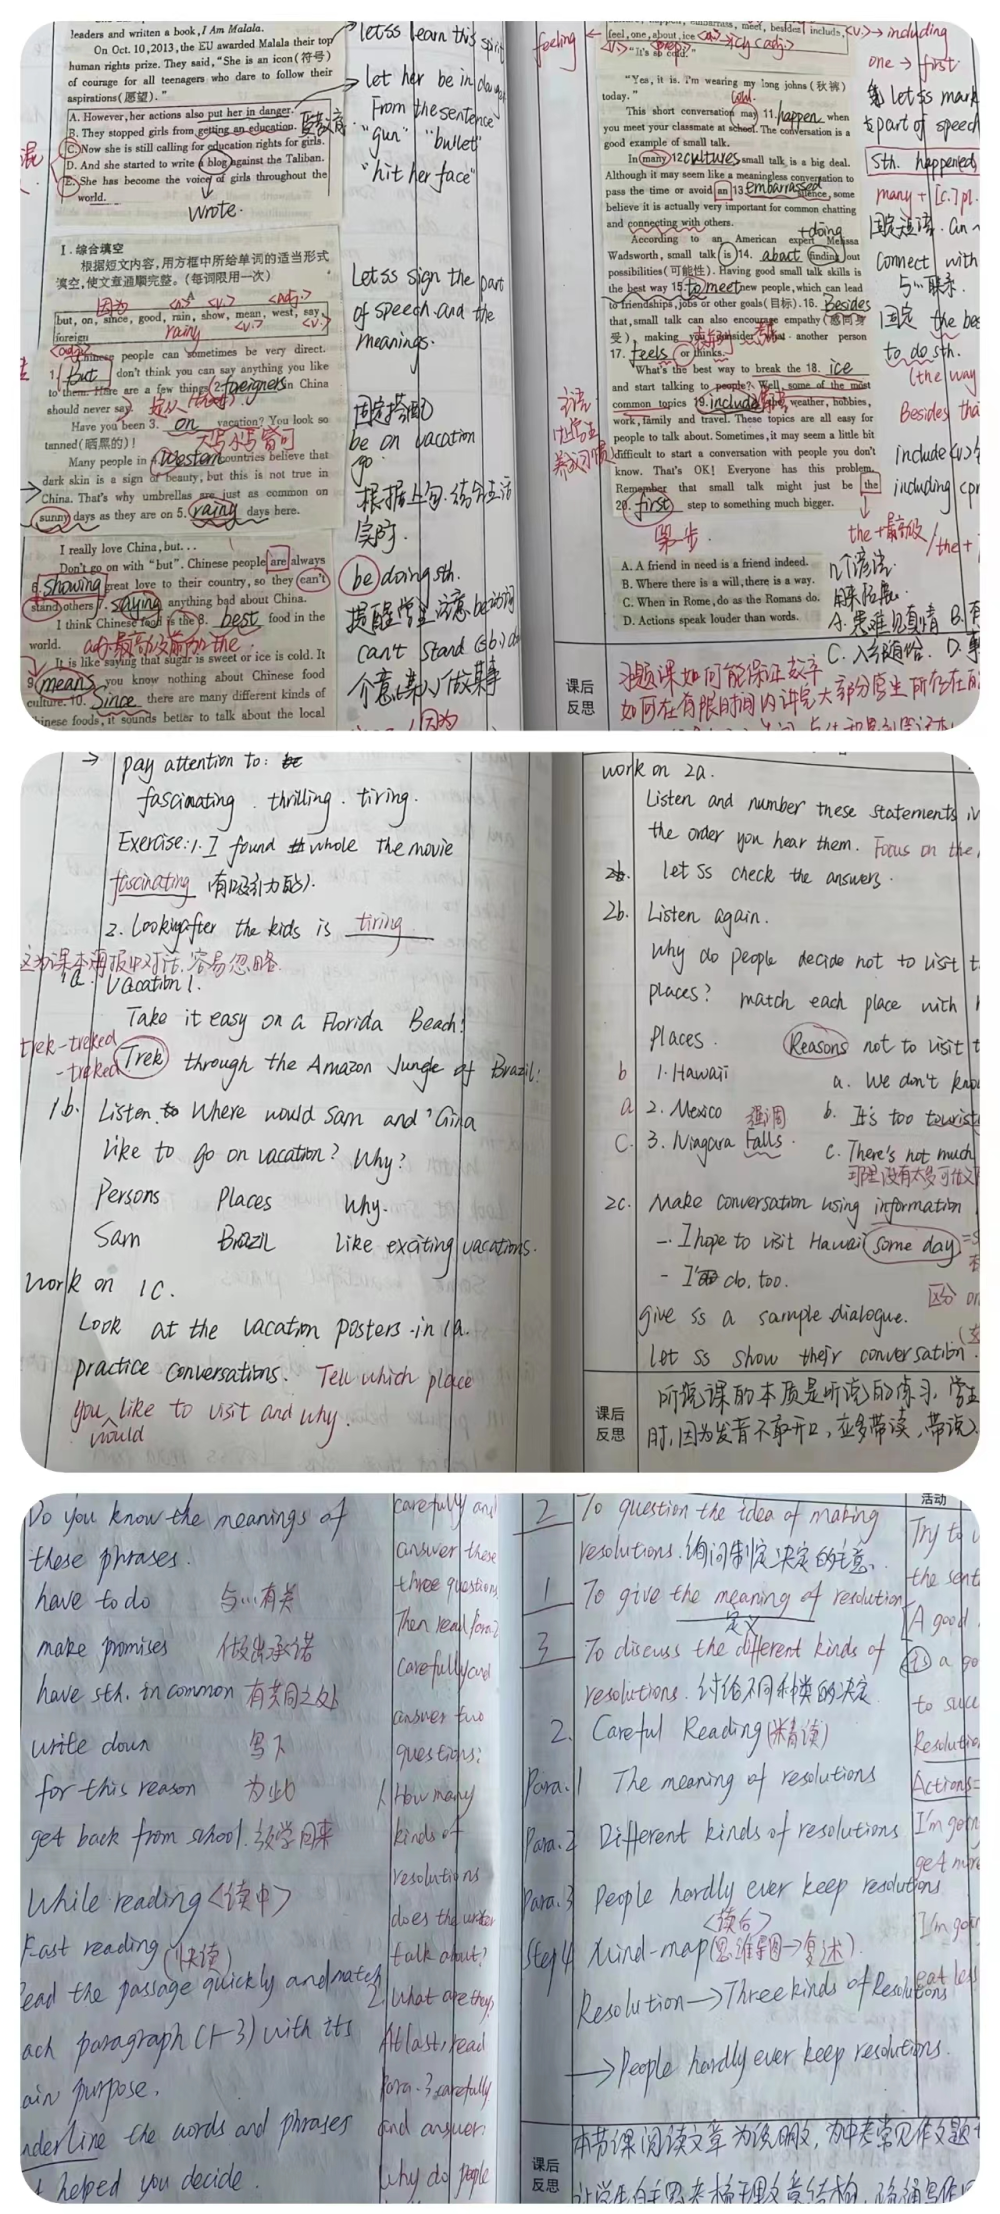 leaders and written a book, I Am Malala.
On Oct. 10, 2013, the EU awarded Malala their top
human rights prize. They said, "She is an icon(符号)
of courage for all teenagers who dare to follow their
aspirations(愿望)."
A. However, her actions also put her in danger.
B. They stopped girls from getting an education.
C. Now she is still calling for education rights for girls.
D. And she started to write a blog against the Taliban.
E. She has become the voice of girls throughout the
world.
wrote.
let ss learn this spirit
let her be in
From the sentence
"gun" "bullet"
"hit her face"
I. 综合填空
根据短文内容,用方框中所给单词的适当形式
填空,使文章通顺完整。(每词限用一次)
因为 <n.> <v.> <adj.>
but, on, since, good, rain, show, mean, west, say,
foreign rainy <v.> <v.>
<adj.>
Chinese people can sometimes be very direct.
1. But don't think you can say anything you like
to them. Here are a few things 2. foreigners in China
should never say.
Have you been 3. on vacation? You look so
tanned(晒黑的)!
大写小写皆可
Many people in 4. Western countries believe that
dark skin is a sign of beauty, but this is not true in
China. That's why umbrellas are just as common on
sunny days as they are on 5. rainy days here.
I really love China, but...
Don't go on with "but". Chinese people are always
6. showing great love to their country, so they can't
stand others 7. saying anything bad about China.
I think Chinese food is the 8. best food in the
world.
adj最高级前加the
It is like saying that sugar is sweet or ice is cold. It
9. means you know nothing about Chinese food
culture. 10. Since there are many different kinds of
Chinese foods, it sounds better to talk about the local
Let ss sign the part
of speech and the
meanings.
固定搭配
be on vacation
go
根据上句.结合生活
实际.
be doing sth.
提醒学生注意be动词
can't stand (sb.) doing
feeling
feel, one, about, ice
"It's so cold."
"Yes, it is. I'm wearing my long johns (秋裤)
today."
This short conversation may 11. happen when
you meet your classmate at school. The conversation is a
good example of small talk.
In many 12. cultures small talk is a big deal.
Although it may seem like a meaningless conversation to
pass the time or avoid an 13. embarrassed silence, some
believe it is actually very important for common chatting
and connecting with others.
+doing
According to an American expert Melissa
Wadsworth, small talk is 14. about finding out
possibilities(可能性). Having good small talk skills is
the best way 15. to meet new people, which can lead
to friendships, jobs or other goals(目标). 16. Besides
that, small talk can also encourage empathy(感同身
受), making you consider what another person
17. feels or thinks.
What's the best way to break the 18. ice
and start talking to people? Well, some of the most
common topics 19. include the weather, hobbies,
work, family and travel. These topics are all easy for
people to talk about. Sometimes, it may seem a little bit
difficult to start a conversation with people you don't
know. That's OK! Everyone has this problem.
Remember that small talk might just be the
20. first step to something much bigger.
第一步.
A. A friend in need is a friend indeed.
B. Where there is a will, there is a way.
C. When in Rome, do as the Romans do.
D. Actions speak louder than words.
<v.> → including
one → first.
let ss mark
part of speech
Sth. happened
many + [c.] pl.
固定短语. an
connect with
与…联系.
固定 the best
to do sth.
(the way
Besides that
include <v.>
including
the+最高级
几个谚语.
A. 患难见真情 B.
C. 入乡随俗. D.
课后
反思
习题课如何能保证效率
如何在有限时间内讲完大部分学生所存在的
→ pay attention to:
fascinating. thrilling. tiring.
Exercise: 1. I found whole the movie
fascinating (有吸引力的).
2. Looking after the kids is tiring
这为课本海报中对话, 容易忽略.
1a. Vacation 1.
Take it easy on a Florida Beach!
trek-treked
-treked
Trek through the Amazon Jungle of Brazil!
1b. Listen. Where would Sam and Gina
like to go on vacation? Why?
Persons Places Why.
Sam Brazil like exciting vacations.
work on 1c.
Look at the vacation posters in 1a.
practice conversations. Tell which place
you would like to visit and why.
work on 2a.
Listen and number these statements in
the order you hear them. Focus on the
let ss check the answers.
2b. Listen again.
Why do people decide not to visit
places? match each place with
Places. Reasons not to visit
b 1. Hawaii a. We don't know
a 2. Mexico 强调 b. It's too tourist
c. 3. Niagara Falls. c. There's not much
那里没有太多可做
2c. Make conversation using information
- I hope to visit Hawaii some day
- I do, too.
区分
give ss a sample dialogue.
let ss show their conversation.
课后
反思
听说课的本质是听说的练习, 学生
时, 因为发音不敢开口, 应多带读, 带说
Do you know the meanings of
these phrases.
have to do 与…有关
make promises 做出承诺
have sth. in common 有共同之处
write down 写下
for this reason 为此
get back from school. 放学回来
While reading <读中>
Fast reading (快读)
Read the passage quickly and match
each paragraph (1-3) with its
main purpose.
Underline the words and phrases
helped you decide.
carefully and
answer these
three questions
Then read Para.2
carefully and
answer two
questions:
1. How many
kinds of
resolutions
does the writer
talk about?
2. What are they?
At last, read
Para. 3 carefully
and answer:
Why do people
2 To question the idea of making
resolutions. 询问制定决定的主意.
1 To give the meaning of resolution
定义
3 To discuss the different kinds of
resolutions. 讨论不同种类的决定
2. Careful Reading (精读)
Para. 1 The meaning of resolutions
Para. 2 Different kinds of resolutions
Para. 3 People hardly ever keep resolutions
<读后>
Step 4 Mind-map (思维导图→复述).
Resolution → Three kinds of Resolutions
→ People hardly ever keep resolutions.
活动
Try to
the sent
A good
is a go
to succ
Resolution
Actions=
I'm goin
get more
I'm goin
eat less
课后
反思
本节课阅读文章为说明文, 为中考常见作文题